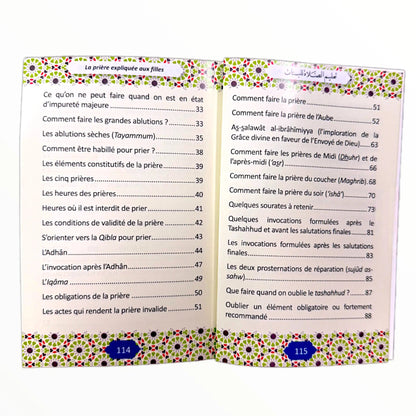 La prière expliquée aux filles
Ce qu'on ne peut faire quand on est en état
d'impureté majeure 33
Comment faire les grandes ablutions ? 33
Les ablutions sèches (Tayammum) 35
Comment être habillé pour prier ? 38
Les éléments constitutifs de la prière 39
Les cinq prières 40
Les heures des prières 41
Heures où il est interdit de prier 41
Les conditions de validité de la prière 42
S'orienter vers la Qibla pour prier 43
L'Adhân 44
L'invocation après l'Adhân 47
L'Iqâma 49
Les obligations de la prière 50
Les actes qui rendent la prière invalide 51
114
تعليم الصلاة للبنات
Comment faire la prière 51
Comment faire la prière de l'Aube 52
Aṣ-ṣalawât al-ibrâhîmiyya (l'imploration de la
Grâce divine en faveur de l'Envoyé de Dieu) 63
Comment faire les prières de Midi (Ḍhuhr) et de
l'après-midi ('aṣr) 67
Comment faire la prière du coucher (Maghrib). 68
Comment faire la prière du soir ('ishâ') 70
Quelques sourates à retenir 73
Quelques invocations formulées après le
Tashahhud et avant les salutations finales 81
Les invocations formulées après les salutations
finales 83
Les deux prosternations de réparation (sujûd as-
sahw) 85
Que faire quand on oublie le tashahhud ? 87
Oublier un élément obligatoire ou fortement
recommandé 88
115